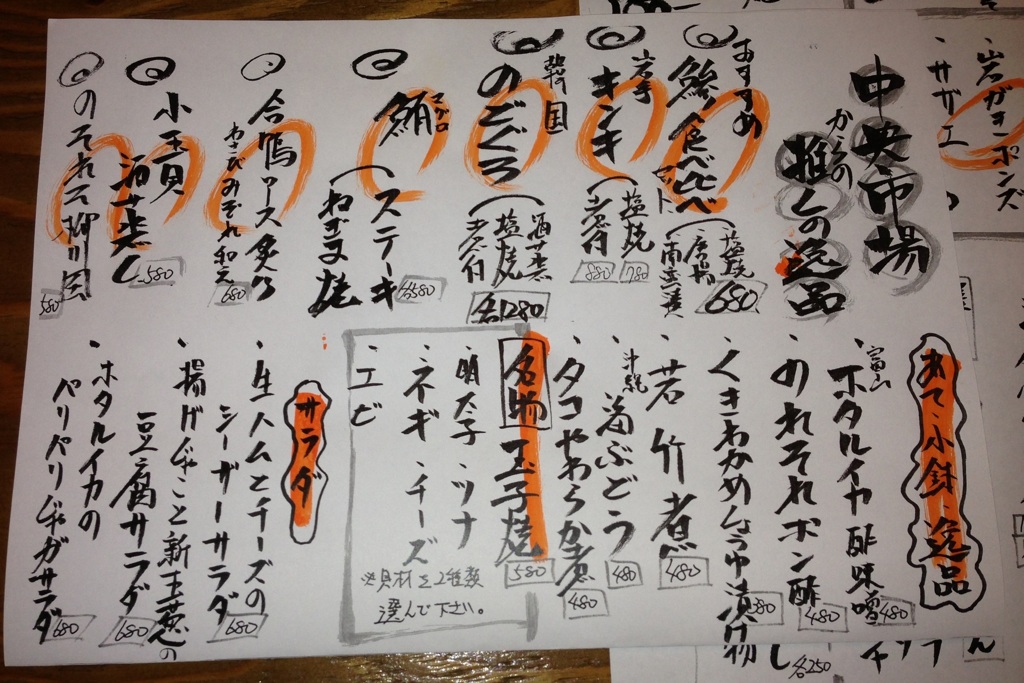 中央市場
からの
推しの逸品
おすすめ
鯵食べ比べセット
塩焼
南蛮漬
680
岩手
キンキ
塩焼 780
煮付 880
韓国
のどぐろ
酒蒸
塩焼
煮付
各1280
マグロ
鮪
ステーキ
ねぎま焼
各580
合鴨ロース炙り
わさびみぞれ和え
680
小玉貝
酒蒸し
580
のそれそ柳川風
580
あて・小鉢・逸品
・富山
ホタルイカ酢味噌
480
・のれそれポン酢
480
・くきわかめしょうゆ漬け物
380
・若竹煮
480
・沖縄
海ぶどう
480
・タコやわらか煮
480
名物玉子焼
580
・明太子・ツナ
・ネギ・チーズ
・エビ
※具材を2種類
選んで下さい。
サラダ
・生ハムとチーズの
シーザーサラダ
680
・揚げじゃこと新玉葱の
豆腐サラダ
680
・ホタルイカの
パリパリじゃがサラダ
680
・岩ガキポンズ
・サザエ
各250